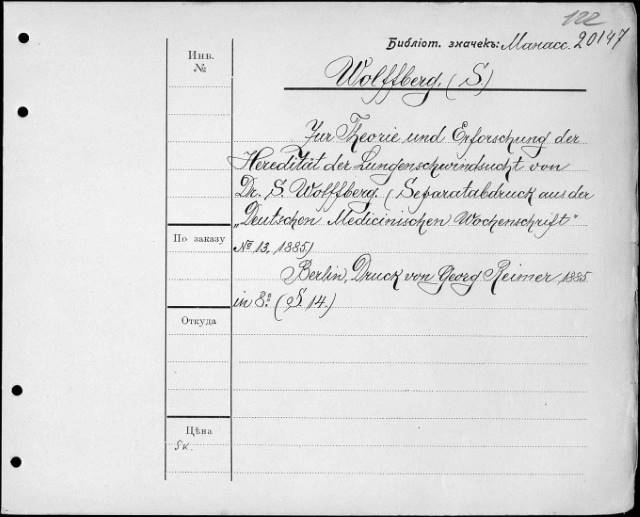 122
Библіот. значекъ: Манасс. 20147
Инв.
№
Wolffberg. (S)
Zur Theorie und Erforschung der
Heredität der Lungenschwindsucht von
Dr. S. Wolffberg. (Separatabdruck aus der
„Deutschen Medicinischen Wochenschrift“
По заказу
№ 13, 1885)
Berlin, Druck von Georg Reimer 1885
in 8º (S. 14.)
Откуда
Цѣна
5к.